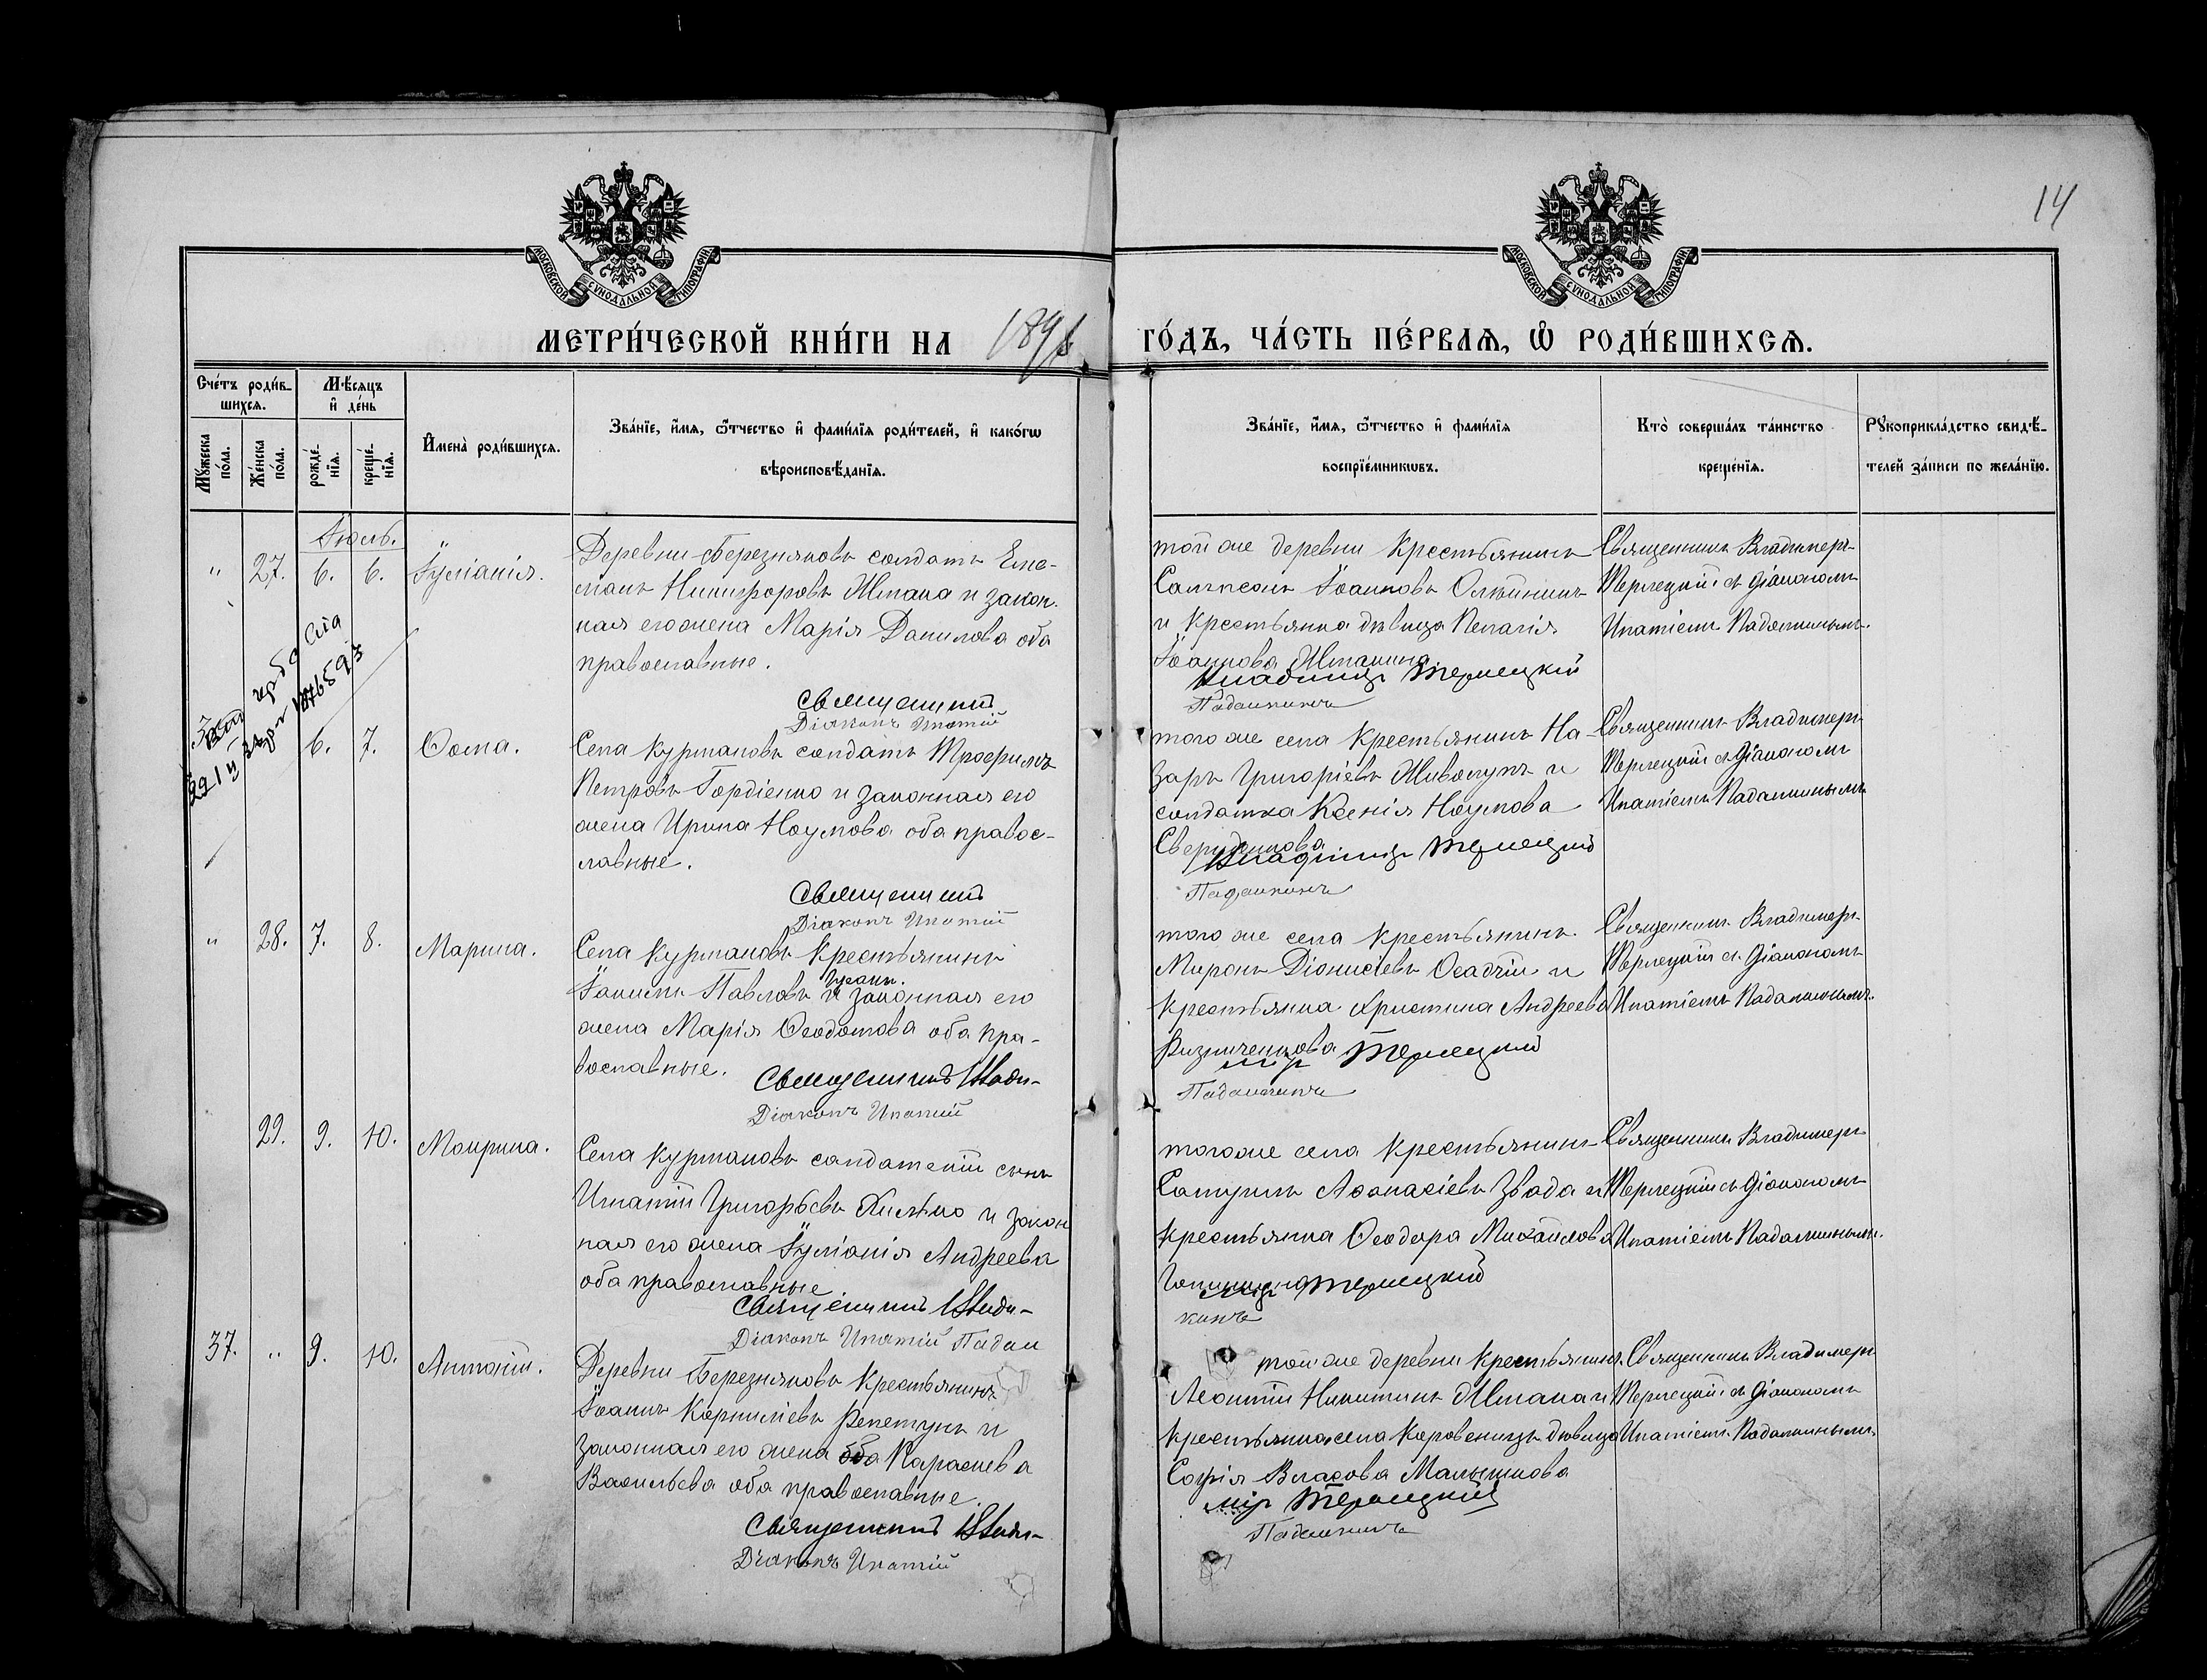 14
МОСКОВСКОЙ СѴНОДАЛЬНОЙ ТИПОГРАФІИ
МОСКОВСКОЙ СѴНОДАЛЬНОЙ ТИПОГРАФІИ
МЕТРИ́ЧЕСКОЙ КНИ́ГИ НА 189
ГО́ДЪ, ЧА́СТЬ ПЕ́РВАѦ, Ѡ҆ РОДИ́ВШИХСѦ.
Сче́тъ роди́в-
шихсѧ.
Мѣ́сѧцъ
и҆ де́нь
Мꙋ́жеска
по́ла.
Же́нска
по́ла.
рожде́-
нїѧ.
креще́-
нїѧ.
И҆мена̀ роди́вшихсѧ.
Зва́нїе, и҆́мѧ, ѻ҆́тчество и҆ фами́лїѧ роди́телей, и҆ како́гѡ
вѣроисповѣ́данїѧ.
Зва́нїе, и҆́мѧ, ѻ҆́тчество и҆ фами́лїѧ
воспрїе́мникѡвъ.
Кто̀ соверша́лъ та́инство
креще́нїѧ.
Рꙋкоприкла́дство свидѣ́-
телей за́писи по жела́нїю.
Іюль.
" 27. 6. 6. Іуліанія.
Деревни Березняковъ солдатъ Еме-
ліанъ Никифоровъ Жтана и закон-
ная его жена Марія Данилова оба
православные.
Священникъ
Діаконъ Ипатій
той же деревни крестьянинъ
Самсонъ Іоанновъ Олѣйникъ
и крестьянка дѣвица Пелагія
Іоаннова
Владиміръ Терлецкій
Падалкинъ
Священникъ Владимеръ
Терлецкій съ діакономъ
Ипатіемъ Падалкинымъ.
6. 7. Ѳома.
Села Курмановъ солдатъ Трофимъ
Петровъ Гордіенко и законная его
жена Ирина Наумова оба правос-
лавные.
Священникъ
Діаконъ Ипатій
того же села крестьянинъ На-
заръ Григоріевъ Живолупъ и
солдатка Ксенія Наумова
Владиміръ Терлецкій
Падалкинъ
Священникъ Владимеръ
Терлецкій съ діакономъ
Ипатіемъ Падалкинымъ
" 28. 7. 8. Марина.
Села Курмановъ крестьянинъ
Павловъ и законная его
жена Марія Ѳеодотова оба пра-
вославные.
Священникъ Влади-
Діаконъ Ипатій
того же села крестьянинъ
Миронъ Діонисіевъ Осадчій и
крестьянка Христина Андреева
Ризниченкова
міръ Терлецкій
Падалкинъ
Священникъ Владимеръ
Терлецкій съ діакономъ
Ипатіемъ Падалкинымъ.
29. 9. 10. Марина.
Села Курмановъ солдатскій сынъ
Игнатій Григорьевъ и закон
ная его жена Іуліанія Андреева
оба православные
Священникъ Влади-
Діаконъ Ипатій Падал
того же села крестьянинъ
Самуилъ Аѳанасіевъ Звада и
крестьянка Ѳеодора Михайлова
міръ Терлецкій
кинъ
Священникъ Владимеръ
Терлецкій съ діакономъ
Ипатіемъ Падалкинымъ.
37. " 9. 10. Антоній.
Деревни Березняковъ крестьянинъ
Іоаннъ Корниліевъ Репетунъ и
законная его жена Параскева
Васильева оба православные.
Священникъ Влади-
Діаконъ Ипатій
той же деревни крестьянинъ
Леонтій Никитинъ Жтана и
крестьянка села Коровенецъ дѣвица
Софія Власова Малышкова
міръ Терлецкій
Падалкинъ
Священникъ Владимеръ
Терлецкій съ діакономъ
Ипатіемъ Падалкинымъ.